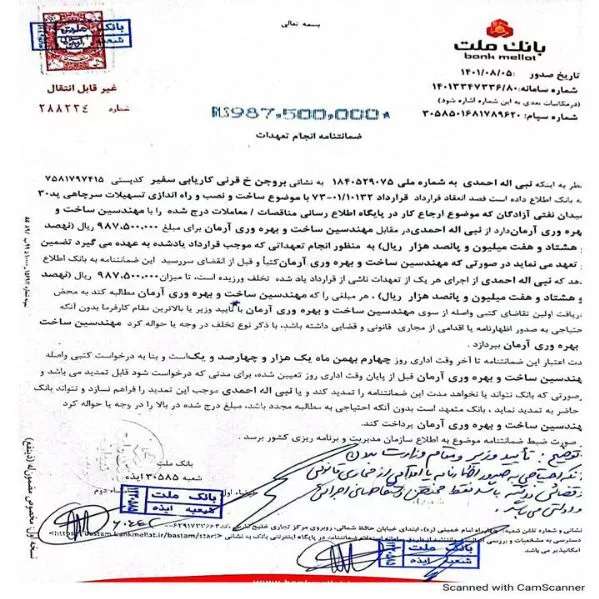 بسمه تعالی
بانک ملت
bank mellat
بانک ملت
شعبه ایذه
غیر قابل انتقال
شماره ۲۸۸۲۲۴
تاریخ صدور :۱۴۰۱/۰۸/۰۵
شماره سامانه:۱۴۰۱۳۳۴۷۳۳۶/۸۰
(درمکاتبات بعدی به این شماره اشاره شود)
شماره سپام: ۳۰۵۸۵۰۱۶۸۱۷۸۹۶۲۰
RLS987,500,000
ضمانتنامه انجام تعهدات
نظر به اینکه نبی اله احمدی به شماره ملی ۱۸۴۰۵۲۹۰۷۵ به نشانی بروجن خ قرنی کاریابی سفیر کدپستی ۷۵۸۱۷۹۷۴۱۵
به بانک اطلاع داده است قصد انعقاد قرارداد قرارداد ۷۳-۰۱/۱۰۱۳۲ با موضوع ساخت و نصب و راه اندازی تسهیلات سرچاهی پد۳۰
میدان نفتی آزادگان که موضوع ارجاع کار در پایگاه اطلاع رسانی مناقصات / معاملات درج شده را با مهندسین ساخت و
بهره وری آرمان دارد از نبی اله احمدی در مقابل مهندسین ساخت و بهره وری آرمان برای مبلغ ۹۸۷,۵۰۰,۰۰۰
و هشتاد و هفت میلیون و پانصد هزار ریال) به منظور انجام تعهداتی که بموجب قرارداد یادشده به عهده می گیرد تضمین
تعهد می نماید در صورتی که مهندسین ساخت و بهره وری آرمان کتباً و قبل از انقضای سررسید این ضمانتنامه به بانک اطلاع
دهد که نبی اله احمدی از اجرای هر یک از تعهدات ناشی از قرارداد یاد شده تخلف ورزیده است، تا میزان ۹۸۷,۵۰۰,۰۰۰ ریال (نهصد
و هشتاد و هفت میلیون و پانصد هزار ریال) ، هر مبلغی را که مهندسین ساخت و بهره وری آرمان مطالبه کند به محض
دریافت اولین تقاضای کتبی واصله از سوی مهندسین ساخت و بهره وری آرمان با تایید وزیر یا بالاترین مقام کارفرما بدون آنکه
احتیاجی به صدور اظهارنامه یا اقدامی از مجاری قانونی و قضایی داشته باشد، با ذکر نوع تخلف در وجه یا حواله کرد مهندسین ساخت
و بهره وری آرمان بپردازد.
مدت اعتبار این ضمانتنامه تا آخر وقت اداری روز چهارم بهمن ماه یک هزار و چهارصد و یک است و بنا به درخواست کتبی واصله
مهندسین ساخت و بهره وری آرمان قبل از پایان وقت اداری روز تعیین شده، برای مدتی که درخواست شود قابل تمدید می باشد و
درصورتی که بانک نتواند یا نخواهد مدت این ضمانتنامه را تمدید کند و یا نبی اله احمدی موجب این تمدید را فراهم نسازد و نتواند بانک
را حاضر به تمدید نماید ، بانک متعهد است بدون آنکه احتیاجی به مطالبه مجدد باشد، مبلغ درج شده در بالا را در وجه یا حواله کرد
مهندسین ساخت و بهره وری آرمان پرداخت کند.
در صورت ضبط ضمانتنامه موضوع به اطلاع سازمان مدیریت و برنامه ریزی کشور برسد .
بانک ملت
شعبه ۳۰۵۸۵ ایذه
توضیح : تأیید وزیر و مقام وزارت
بانک ملت
شعبه ایذه
بانک ملت
شعبه ایذه
نسخه اول: مخصوص مضمون له (ذینفع)
Scanned with CamScanner